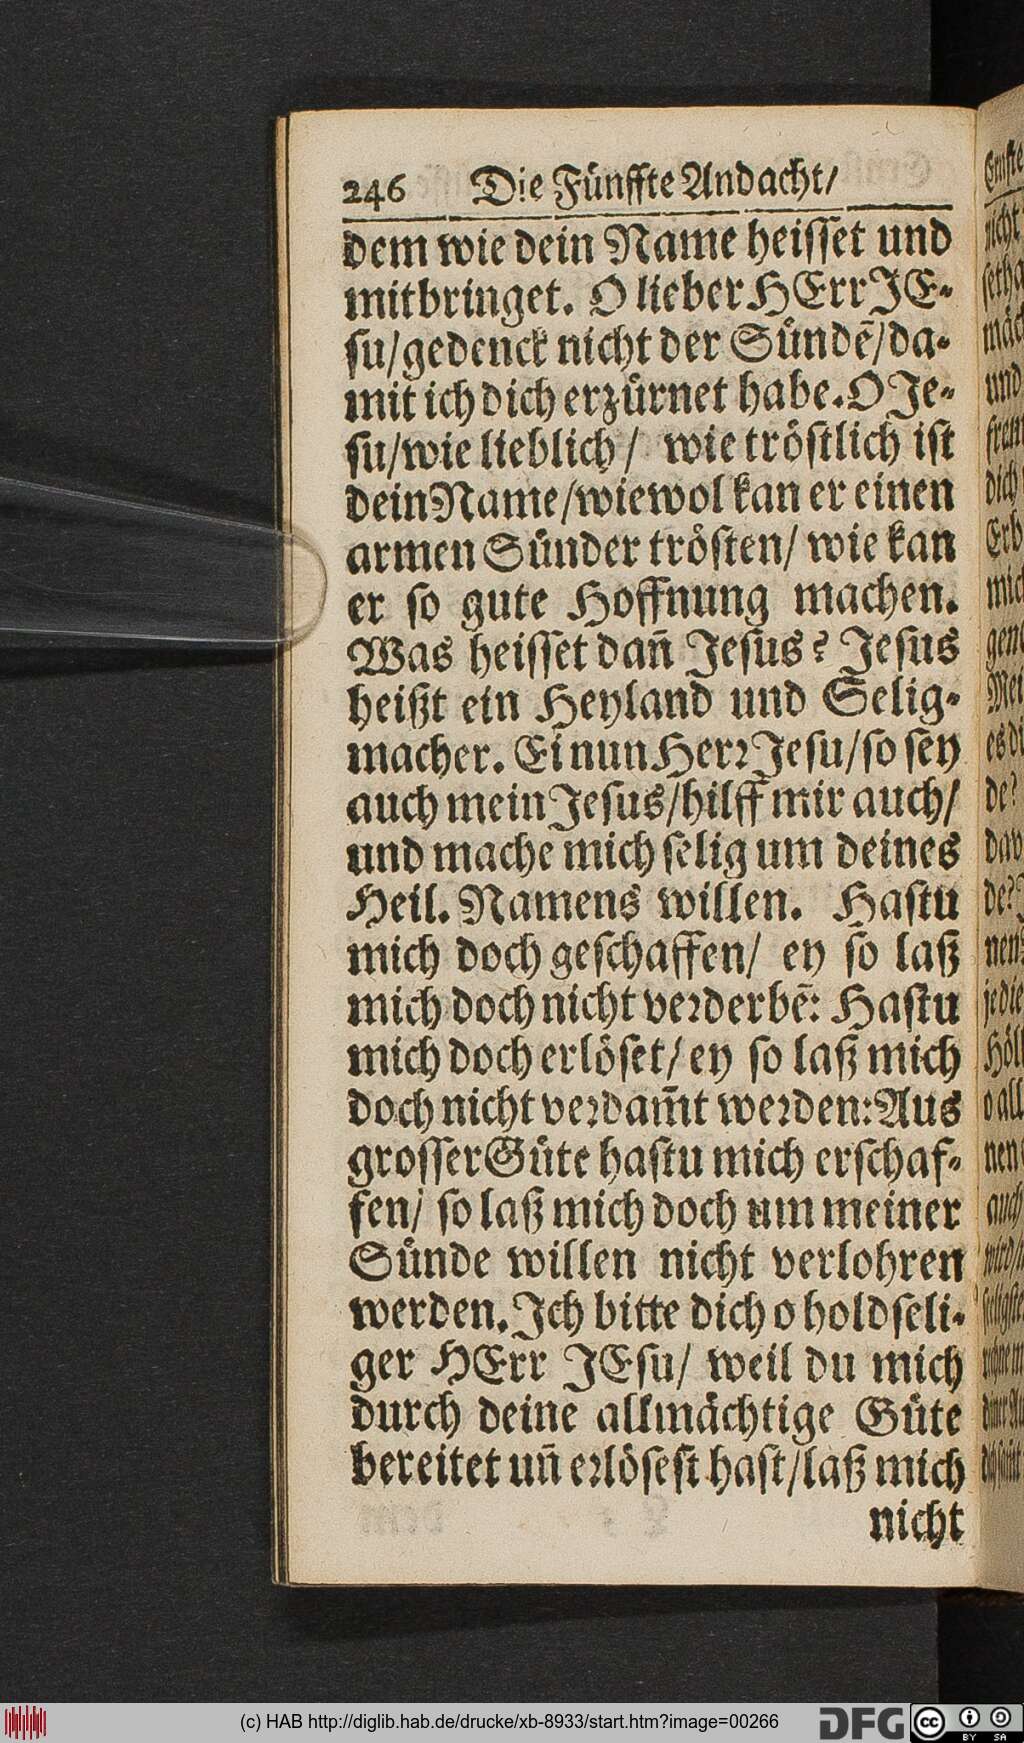 246 Die Fünffte Andacht/
dem wie dein Name heisset und
mitbringet. O lieber HErr JE-
su/gedenck nicht der Sündē/da-
mit ich dich erzürnet habe. O Je-
su/wie lieblich/ wie tröstlich ist
dein Name/wie wol kan er einen
armen Sünder trösten/ wie kan
er so gute Hoffnung machen.
Was heisset dañ Jesus? Jesus
heißt ein Heyland und Selig-
macher. Ei nun Herr Jesu/so sey
auch mein Jesus/hilff mir auch/
und mache mich selig um deines
Heil. Namens willen. Hastu
mich doch geschaffen/ ey so laß
mich doch nicht verderbē: Hastu
mich doch erlöset/ ey so laß mich
doch nicht verdam̃t werden: Aus
grosser Güte hastu mich erschaf-
fen/ so laß mich doch um meiner
Sünde willen nicht verlohren
werden. Ich bitte dich o holdseli-
ger HErr JEsu/ weil du mich
durch deine allmächtige Güte
bereitet uñ erlösest hast/laß mich
nicht
(c) HAB http://diglib.hab.de/drucke/xb-8933/start.htm?image=00266
DFG
cc BY SA